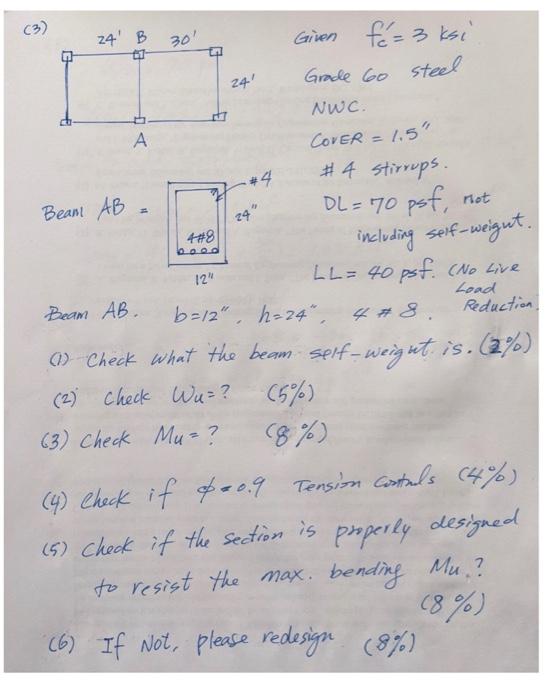 (3)
24' B 30'
24'
A
Given fc' = 3 ksi
Grade 60 steel
NWC.
COVER = 1.5"
#4 stirrups.
DL = 70 psf, not
including self-weight.
LL = 40 psf. (No Live
Load
Reduction)
Beam AB =
#4
24"
4#8
12"
Beam AB. b=12", h=24", 4 # 8.
(1) Check what the beam self-weight is. (2%)
(2) Check Wu=? (5%)
(3) Check Mu=? (8%)
(4) Check if φ=0.9 Tension Controls (4%)
(5) Check if the section is properly designed
to resist the max. bending Mu.?
(8%)
(6) If Not, please redesign (8%)